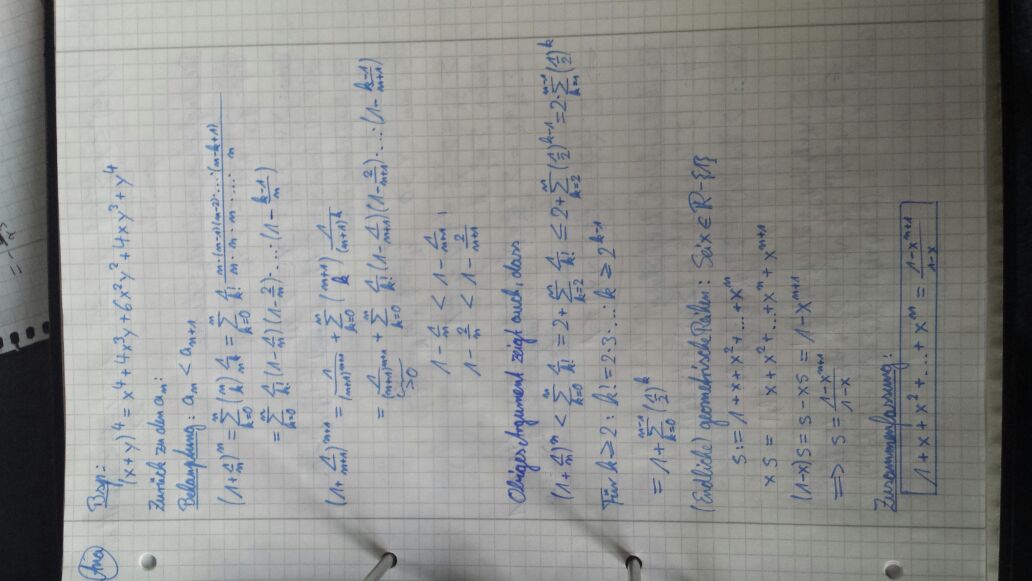 Ana
Bsp.:
(x+y)^4 = x^4 + 4x^3y + 6x^2y^2 + 4xy^3 + y^4
Zurück zu den a_n:
Behauptung: a_n < a_{n+1}
(1+1/n)^n = Σ_{k=0}^n (n k) 1/n^k = Σ_{k=0}^n 1/k! n·(n-1)·(n-2)·...·(n-k+1)/n·n·n·...·n
= Σ_{k=0}^n 1/k! (1-1/n)(1-2/n)·...·(1-(k-1)/n)
(1+1/(n+1))^{n+1} = 1/(n+1)^{n+1} + Σ_{k=0}^n (n+1 k) 1/(n+1)^k
= 1/(n+1)^{n+1} + Σ_{k=0}^n 1/k! (1-1/(n+1))(1-2/(n+1))·...·(1-(k-1)/(n+1))
>0
1-1/n < 1-1/(n+1) ,
1-2/n < 1-2/(n+1)
Obiges Argument zeigt auch, dass
(1+1/n)^n < Σ_{k=0}^n 1/k! = 2 + Σ_{k=2}^n 1/k! ≤ 2 + Σ_{k=2}^n (1/2)^{k-1} = 2 + Σ_{k=1}^{n-1} (1/2)^k
Für k ≥ 2 : k! = 2·3·...·k ≥ 2^{k-1}
= 1 + Σ_{k=0}^{n-1} (1/2)^k
(Endliche) geometrische Reihen: Sei x ∈ R-{1}
S := 1+x+x^2+...+x^n
xS = x+x^2+...+x^n+x^{n+1}
(1-x)S = S-xS = 1-x^{n+1}
⟹ S = (1-x^{n+1})/(1-x)
Zusammenfassung:
1+x+x^2+...+x^n = (1-x^{n+1})/(1-x)